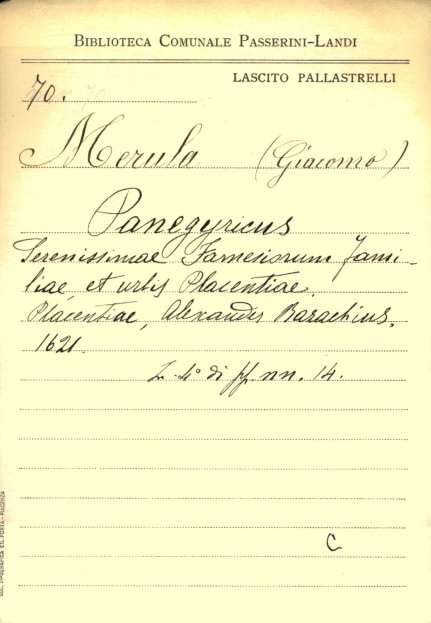 BIBLIOTECA COMUNALE PASSERINI-LANDI
LASCITO PALLASTRELLI
70.
Merula (Giacomo)
Panegyricus
Serenissimae Farnesiorum fami-
liae, et urbis Placentiae.
Placentiae, Alexander Bazachius,
1621.
In-4° di pp. nn. 14.
C